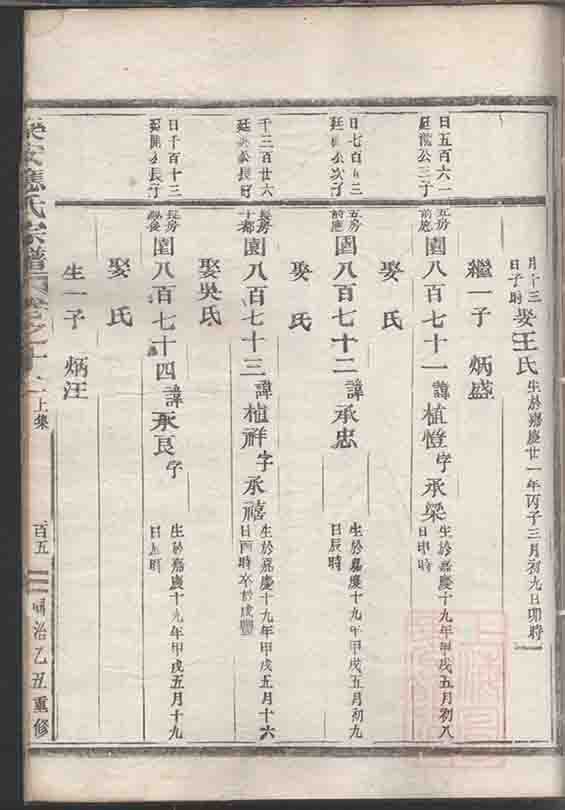 月十三
日子時
娶王氏
生於嘉慶廿一年丙子三月初九日卯時
繼一子 炳盛
日五百六一
廷龍公三子
五房
前應
園八百七十一
諱植
字承梁
生於嘉慶十九年甲戌五月初八
日申時
娶 氏
日七百
廷 公次子
五房
前應
園八百七十二
諱承忠
生於嘉慶十九年甲戌五月初九
日辰時
娶 氏
千三百廿六
廷 公長子
長房
園八百七十三
諱植祥
字承禧
生於嘉慶十九年甲戌五月十六
日酉時卒於咸豐
娶吳氏
日千百十三
廷開公長子
長房
園八百七十四
諱承良
字
生於嘉慶十九年甲戌五月十九
日 時
娶 氏
生一子 炳汪
樂安應氏宗譜 卷之十 上集
百五
同治乙丑重修